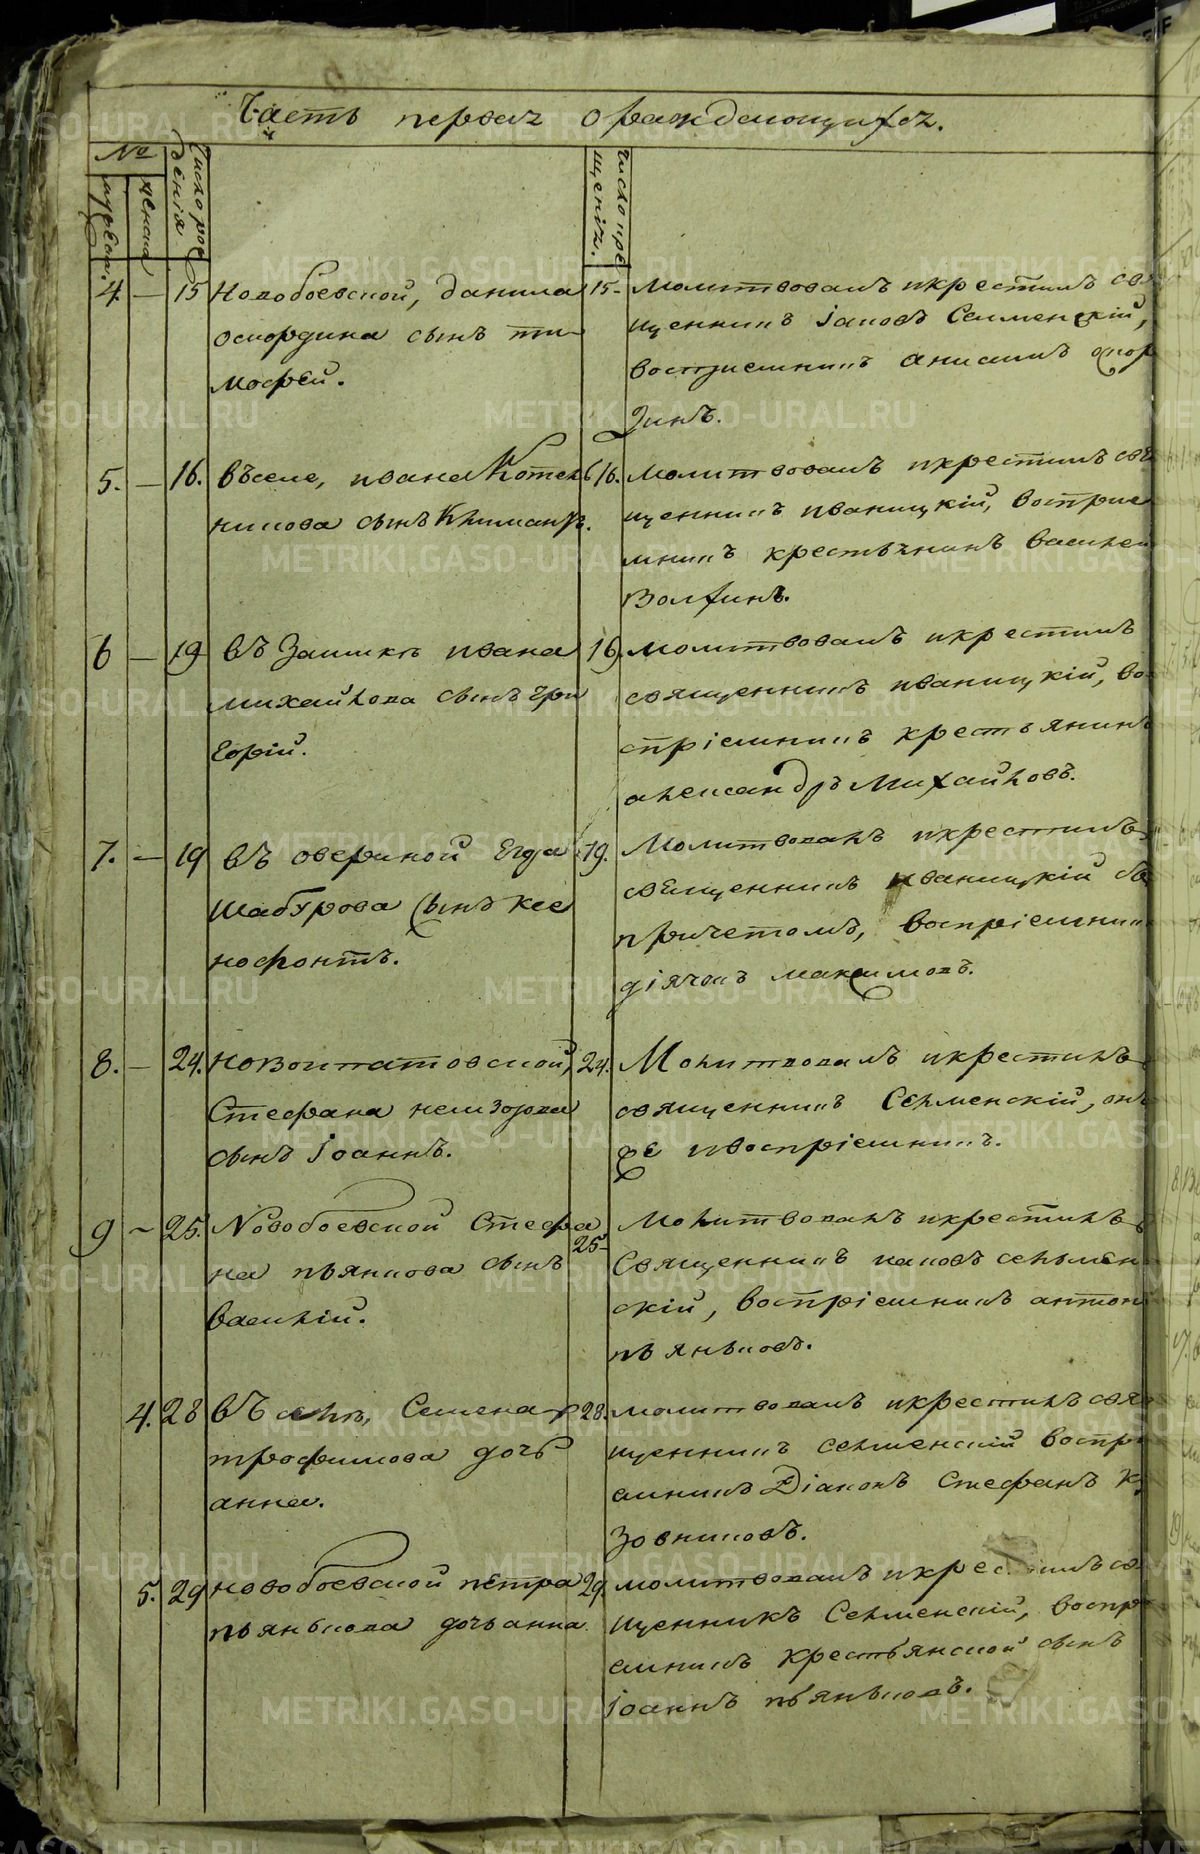 Часть первая о раждающихся.
№
мужеска.
женска
Число рождения
Число крещения.
4. — 15 Новобоевской, данила
оскордина сынъ ти-
мофей.
15- молитвовалъ икрестилъ свя
щенникъ Іаковъ Селменскій,
воспріемникъ анисимъ оскор
динъ.
5. — 16. Въселе, ивана Котель
никова сынъ Климантъ.
16. молитвовалъ икрестилъ свя
щенникъ иваницкій, воспріе
мникъ крестьянинъ василей
Волхинъ.
6 — 19 въ Заимкѣ ивана
михайлова сынъ гри
горій.
19. молитвовалъ икрестилъ
священникъ иваницкій, во
спріемникъ крестьянинъ
александръ Михайловъ.
7. — 19 въ озериной Егора
Шабурова сынъ ксе
нофонтъ.
19. Молитвовалъ икрестилъ
священникъ иваницкій съ
причетомъ, воспріемникъ
діячокъ максимовъ.
8. — 24. новоипатовской,
Стефана
сынъ Іоаннъ.
24. Молитвовалъ икрестилъ
священникъ Селменскій, онъ
же ивоспріемникъ.
9 — 25. Новобоевской Стефа
на пьянкова сынъ
василій.
25- Молитвовалъ икрестилъ
Священникъ иаковъ сельмен
скій, воспріемникъ антон
пьяньковъ.
4. 28 въ селѣ, Семена
трофимова дочь
анна.
28. молитвовалъ икрестилъ свя
щенникъ селменскій воспрі
емникъ Діаконъ Стефанъ К
зовниковъ.
5. 29 новобоевской петра
пьянькова дочь анна
29. молитвовалъ икрестилъ св
щенникъ Селменскій, воспрі
емникъ крестьянской сынъ
іоаннъ пьяньковъ.
METRIKI.GASO-URAL.RU